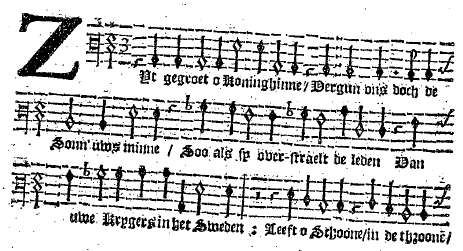 Zyt gegroet o Koninghinne / Vergun ons doch de
Sonn' uws minne / Soo als sy over-straelt de leden Van
uwe Krygers in het Sweden : Leeft o Schoone / in de throone /